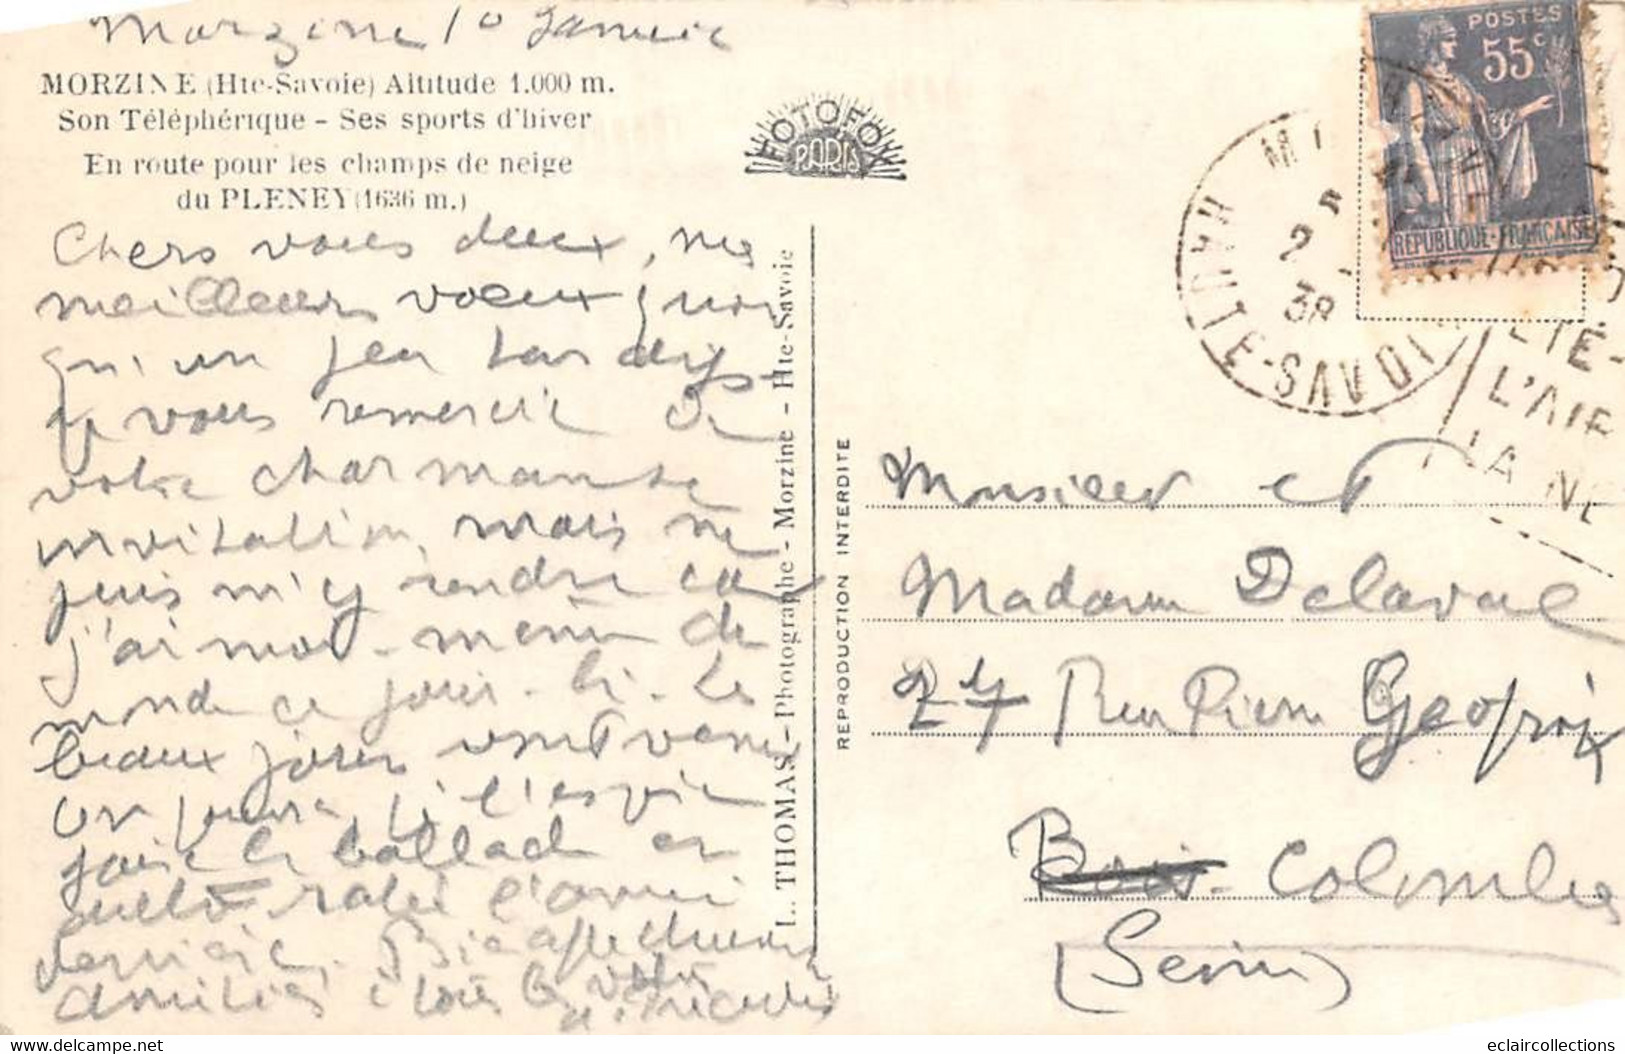 Morzine 1º Janvier
MORZINE (Hte-Savoie) Altitude 1.000 m.
Son Téléphérique - Ses sports d'hiver
En route pour les champs de neige
du PLENEY (1636 m.)
Chers vous deux, mes
meilleurs voeux quoi
qu'un peu tardifs
je vous remercie de
votre charmante
invitation, mais ne
puis m'y rendre car
j'ai moi-même du
monde ce jour-là. Les
beaux jours vont venir
on pourra, si l'envie
faire la ballade en
auto ratée l'année
dernière. Bien affectueusement
amitiés à tous les
FOTOFOX
PARIS
L. THOMAS - Photographe - Morzine - Hte-Savoie
REPRODUCTION INTERDITE
POSTES
55c
REPUBLIQUE-FRANÇAISE
HAUTE-SAVOI
2
38
ÉTÉ-
L'AIR
LA NE
Monsieur et
Madame Delaval
27 Rue Pierre Geofroix
Bois-Colombes
(Seine)
eclaircollections